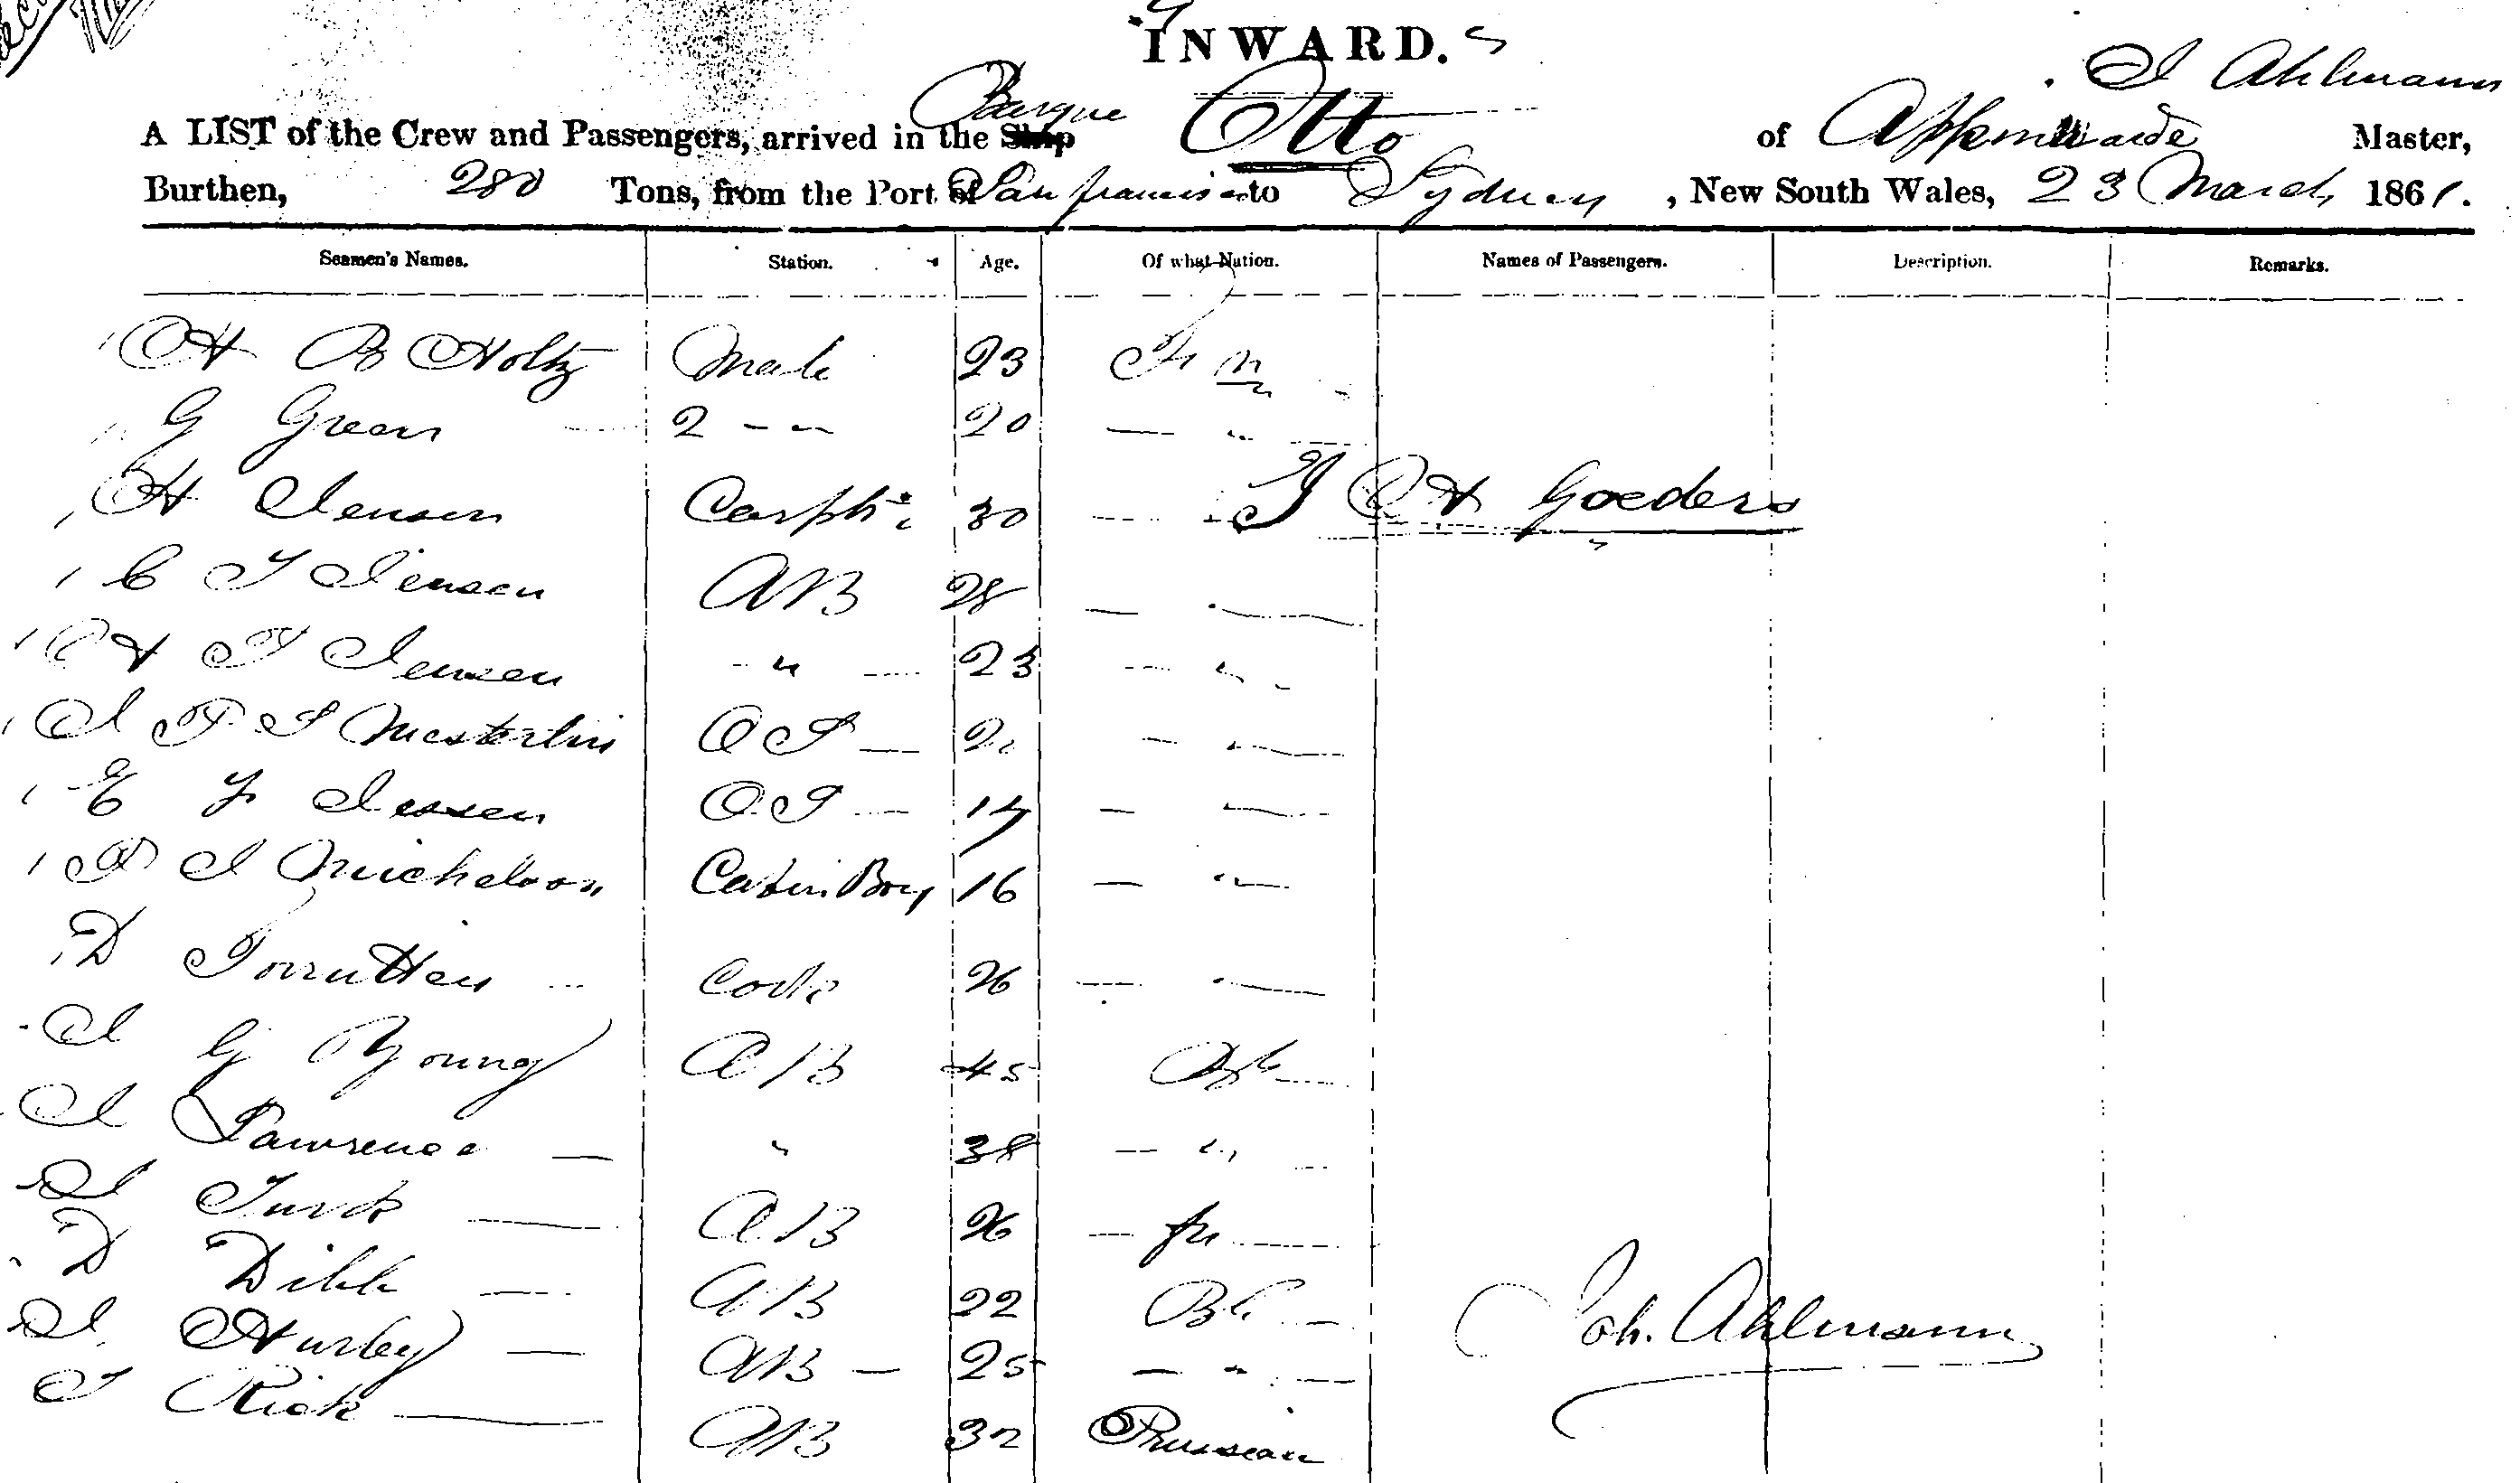 INWARD.
J Ahlmann
A LIST of the Crew and Passengers, arrived in the Ship Barque Otto of Appenrade Master,
Burthen, 280 Tons, from the Port of San Francisco to Sydney, New South Wales, 23 March 1861.
Seamen's Names. Station. Age. Of what Nation. Names of Passengers. Description. Remarks.
H B Holtz Mate 23
G Green 2 - " 20 — "
H Jensen Carptr 30 — " J H Goeders
C J Jensen AB 28 — "
H J Jensen " 23 — "
J P J OS — "
E F Jessen OS — 17 — "
P J Michelson Cabin Boy 16 — "
D Cook 26 — "
J G Young AB 45
J Lawrence — " 38 — "
J Turck AB 26
D Dible — AB 22
J Hurley — AB — 25 — "
J Rick AB 32 Prussian
Joh. Ahlmann